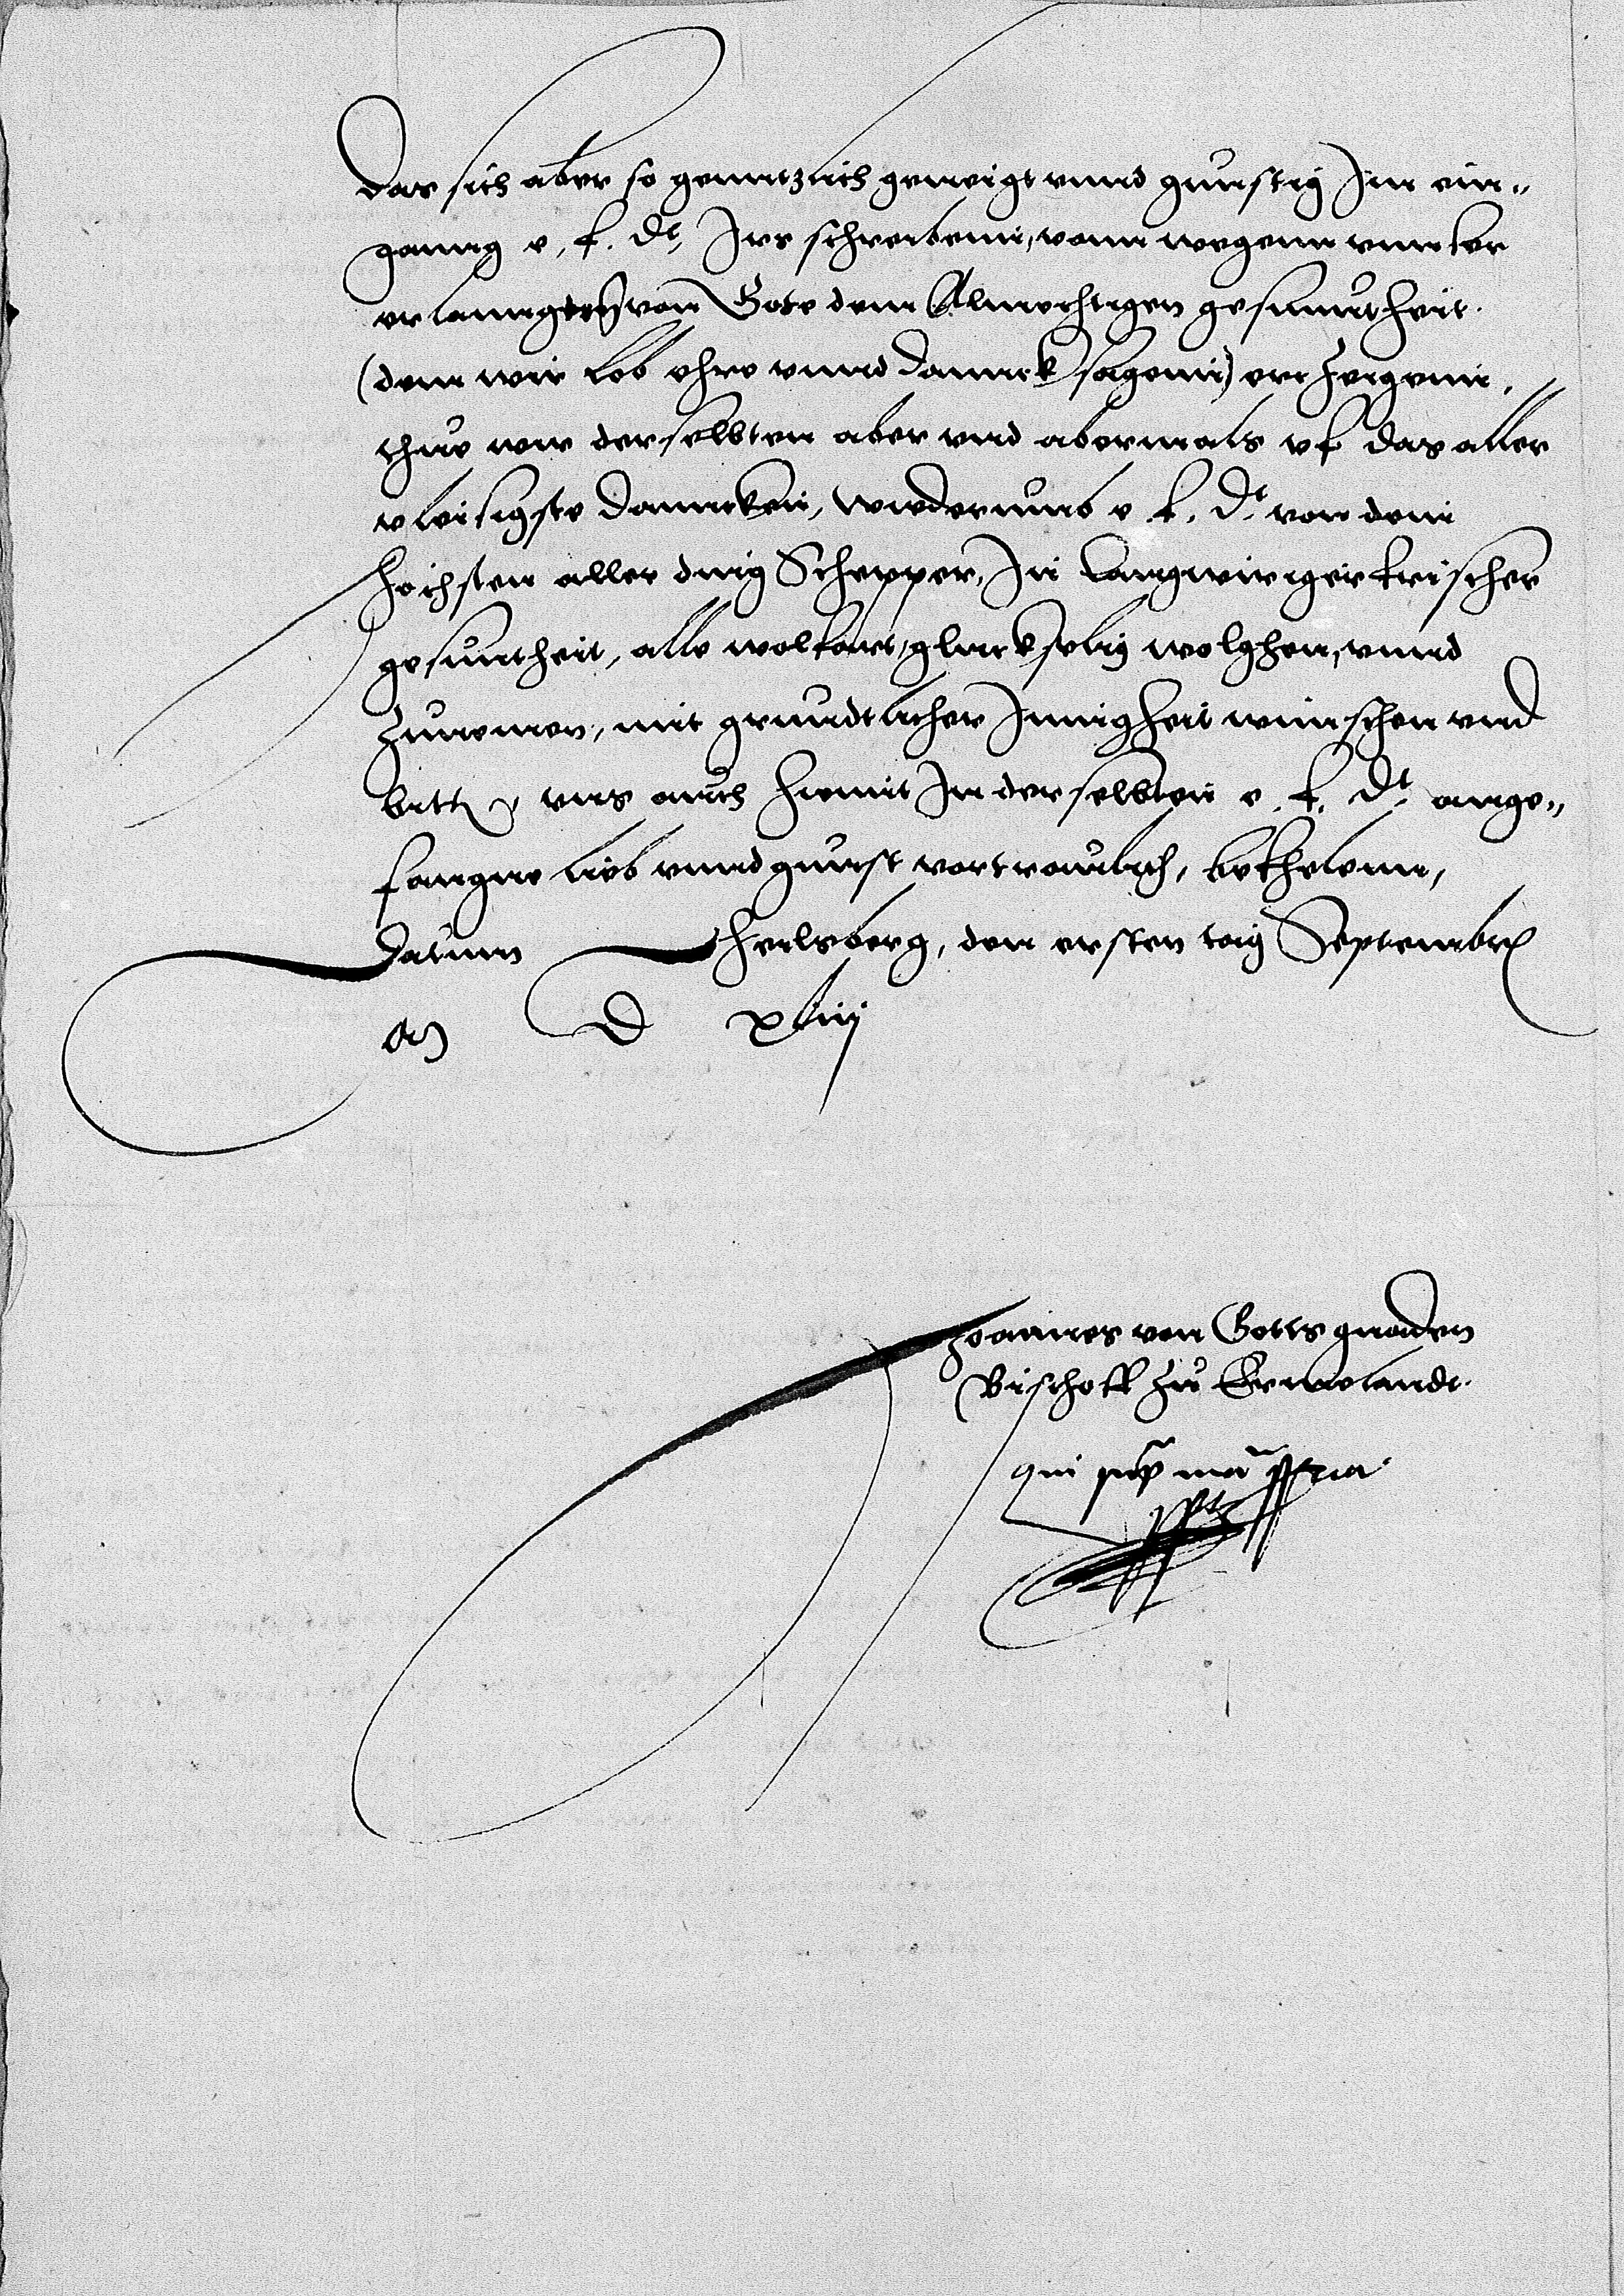 Das sich aber so gentzlich geneigt vnnd gunstig Inn ein-
ganng e. f. dt. Irs schreibenn, vonn wegenn vnnser
erlanngten von Gote dem Almechtigen gesunntheit
(dem wir lob ehre vnnd dannck sagenn) ertzeigenn,
thue wir derselbten aber vnd abermals vf das aller
vleisigste dancken, widerumb e. f. dt. von dem
hochsten aller ding Schepper, In langwiriger frischer
gesuntheit, alle wolfart, gluckselig wolghen, vnnd
Zunemen, mit grundtlicher Innigheit winschen vnd
bitten vns auch hiemit In derselbten e. f. dt. ange-
fangne lieb vnnd gunst vortraulich, bfhelenn,
Datum Heilsberg, den ersten tag Septembris
An D xliij
Joannes von Gots gnaden
Bischoff zu Ermelandt.
qui sup ma ppria